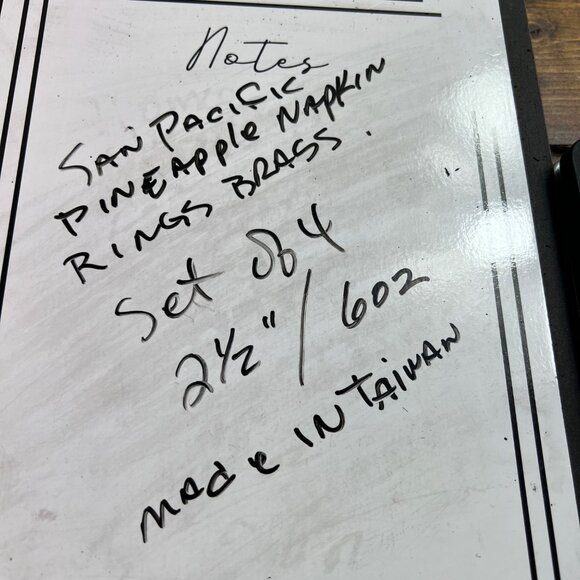 Notes
SAN PACIFIC
PINEApple NAPKIN
RINGS BRASS.
Set of 4
2½" / 6oz
MADe IN TAIWAN